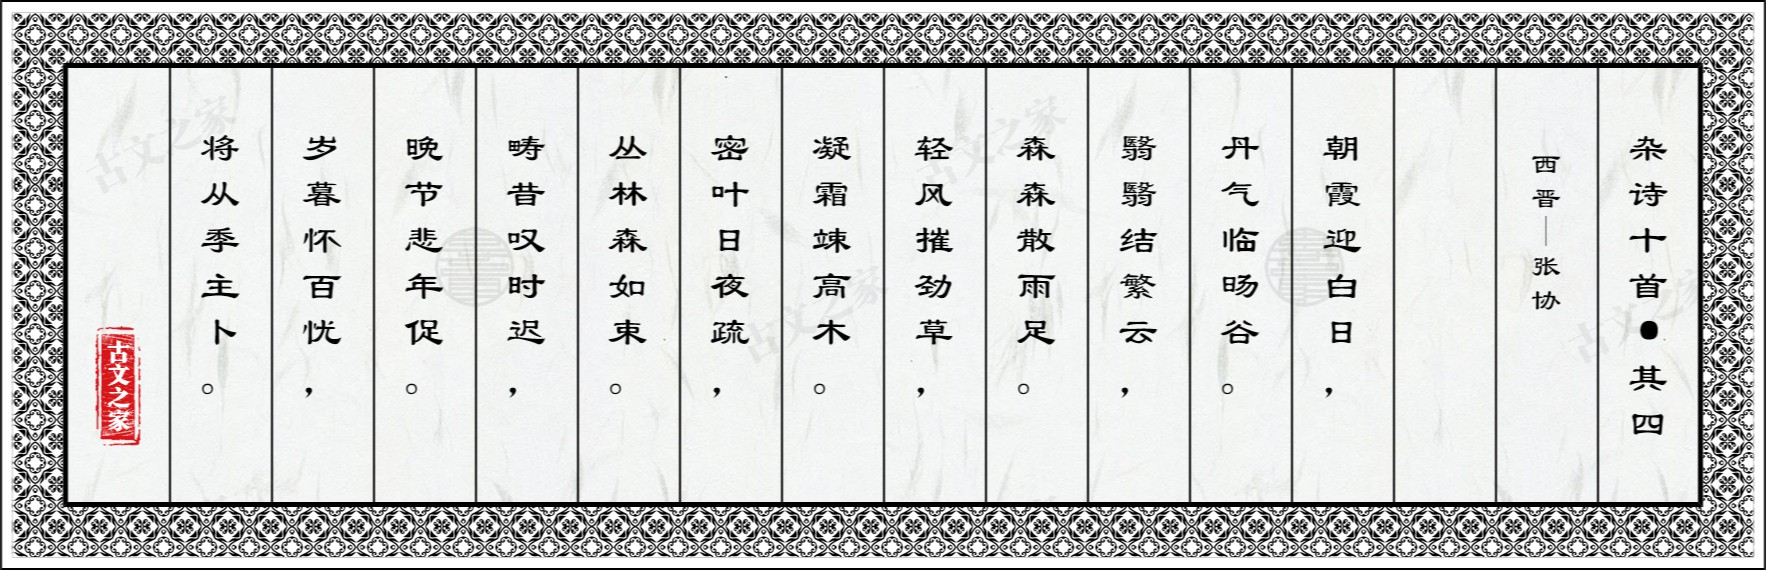 杂诗十首●其四
西晋—张协
朝霞迎白日，
丹气临旸谷。
翳翳结繁云，
森森散雨足。
轻风摧劲草，
凝霜竦高木。
密叶日夜疏，
丛林森如束。
畴昔叹时迟，
晚节悲年促。
岁暮怀百忧，
将从季主卜。
古文之家